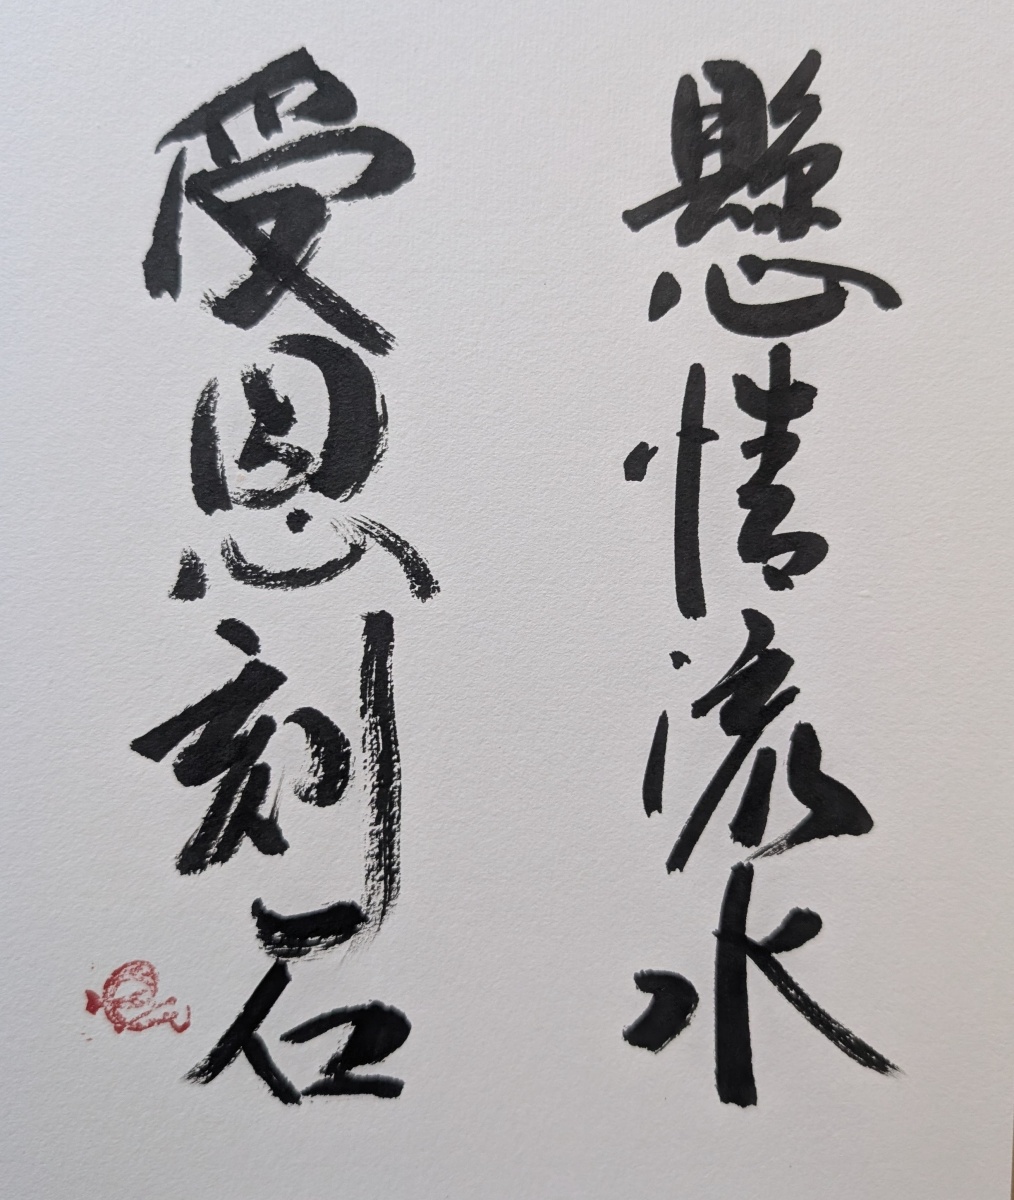 懸情流水
受恩刻石